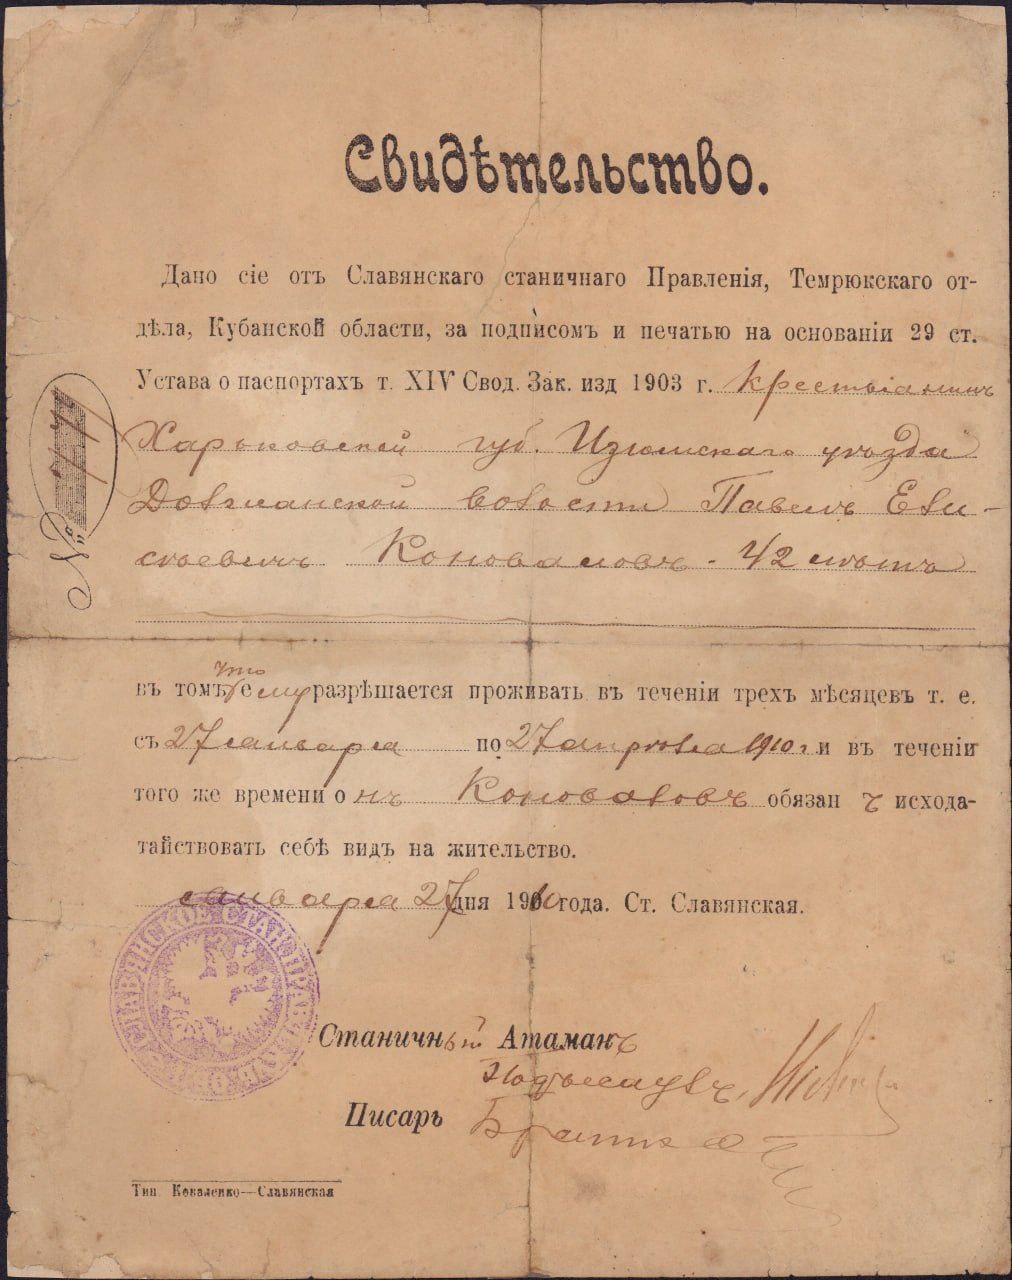 Свидѣтельство.
Дано сіе отъ Славянскаго станичнаго Правленія, Темрюкскаго от-
дѣла, Кубанской области, за подписомъ и печатью на основаніи 29 ст.
Устава о паспортахъ т. XIV Свод. Зак. изд 1903 г. крестьянинъ
Харьковской губ. Изюмскаго уѣзда
волости Павелъ Ели-
сѣевичъ Коноваловъ. 42 лѣтъ
№
что
въ томъ ему разрѣшается проживать въ теченіи трехъ мѣсяцевъ т. е.
съ 27 января по 27 апрѣля 1910 г и въ теченіи
того же времени онъ Коноваловъ обязан ъ исхода-
тайствовать себѣ видъ на жительство.
января 27 дня 1910 года. Ст. Славянская.
Станичный Атаманъ
Подъесаулъ
Писарь
Тип Коваленко—Славянская